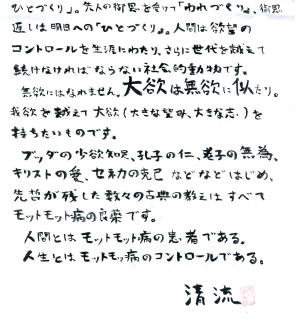 ひとづくり」。先人の御恩を受けて「われづくり」、御恩
返しは明日への「ひとづくり」。人間は欲望の
コントロールを生涯にわたり、さらに世代を越えて
続けなければならない社会的動物です。
無欲にはなれません。大欲は無欲に似たり。
我欲を越えて大欲(大きな望み、大きな志)を
持ちたいものです。
ブッダの少欲知足、孔子の仁、老子の無為、
キリストの愛、セネカの克己などなどはじめ、
先哲が残した数々の古典の教えはすべて
モットモット病の良薬です。
人間とはモットモット病の患者である。
人生とはモットモット病のコントロールである。
清流